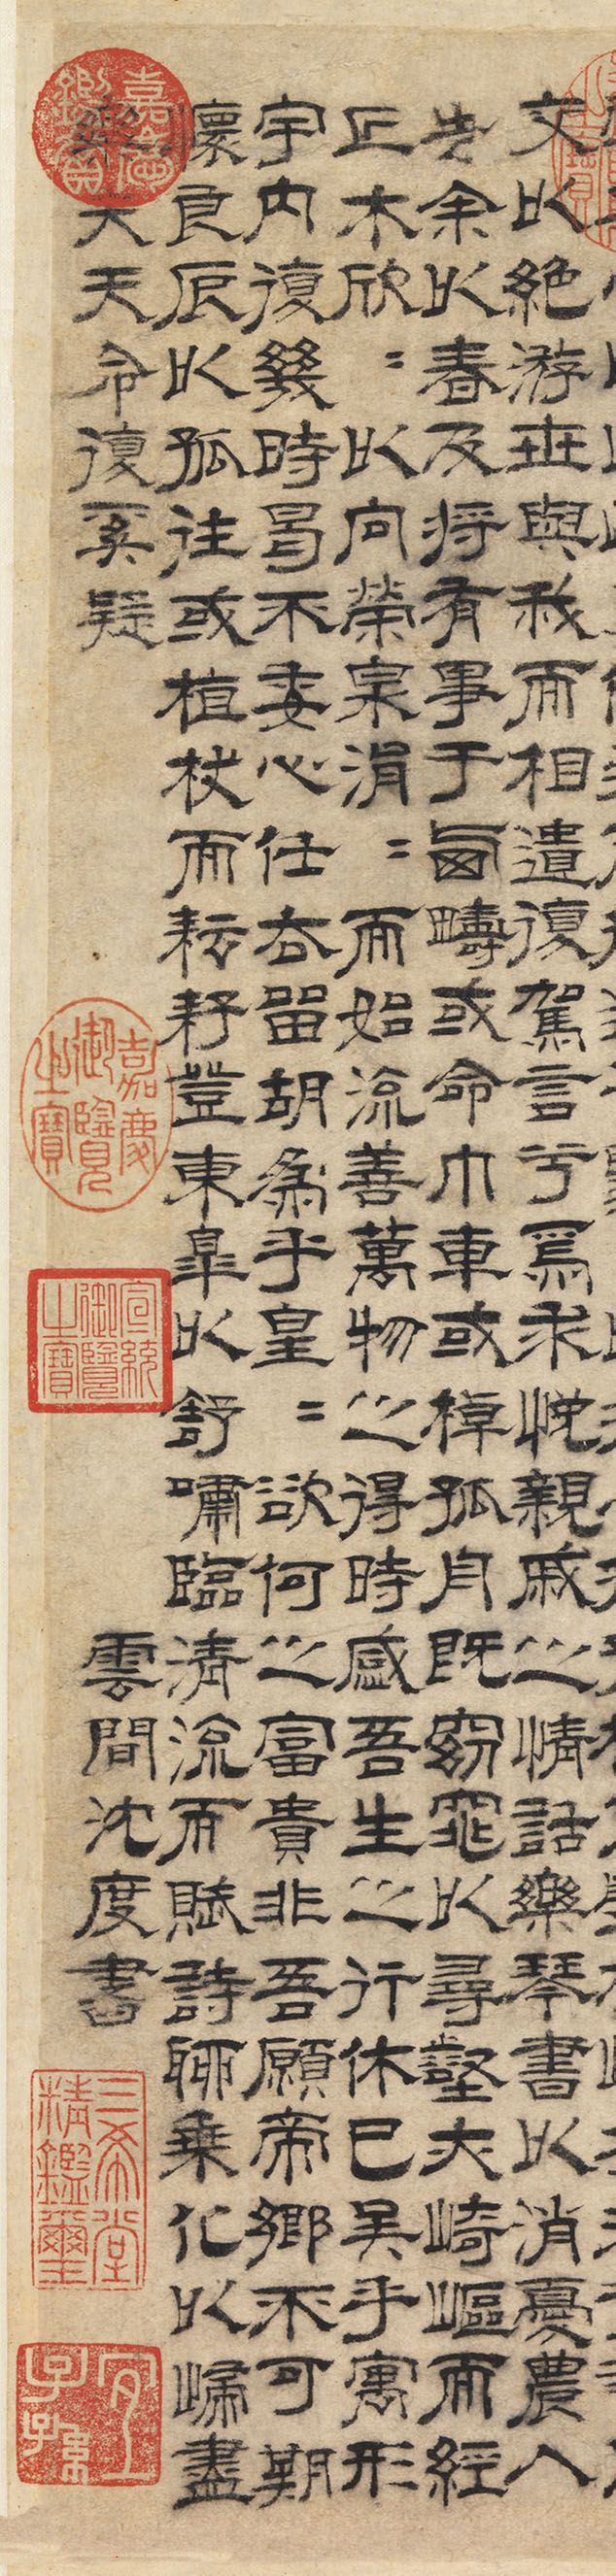 交以絕游世與我而相遺復駕言兮焉求悅親戚之情話樂琴書以消憂農人
告余以春及將有事于西疇或命巾車或棹孤舟既窈窕以尋壑亦崎嶇而經
丘木欣=以向榮泉涓=而始流善萬物之得時感吾生之行休已矣乎寓形
宇內復幾時曷不委心任去留胡為乎皇=欲何之富貴非吾願帝鄉不可期
懷良辰以孤往或植杖而耘耔登東皋以舒嘯臨清流而賦詩聊乘化以歸盡
樂夫天命復奚疑
雲間沈度書
嘉慶鑑賞
嘉慶御覽之寶
宣統御覽之寶
三希堂精鑑璽
宜子孫